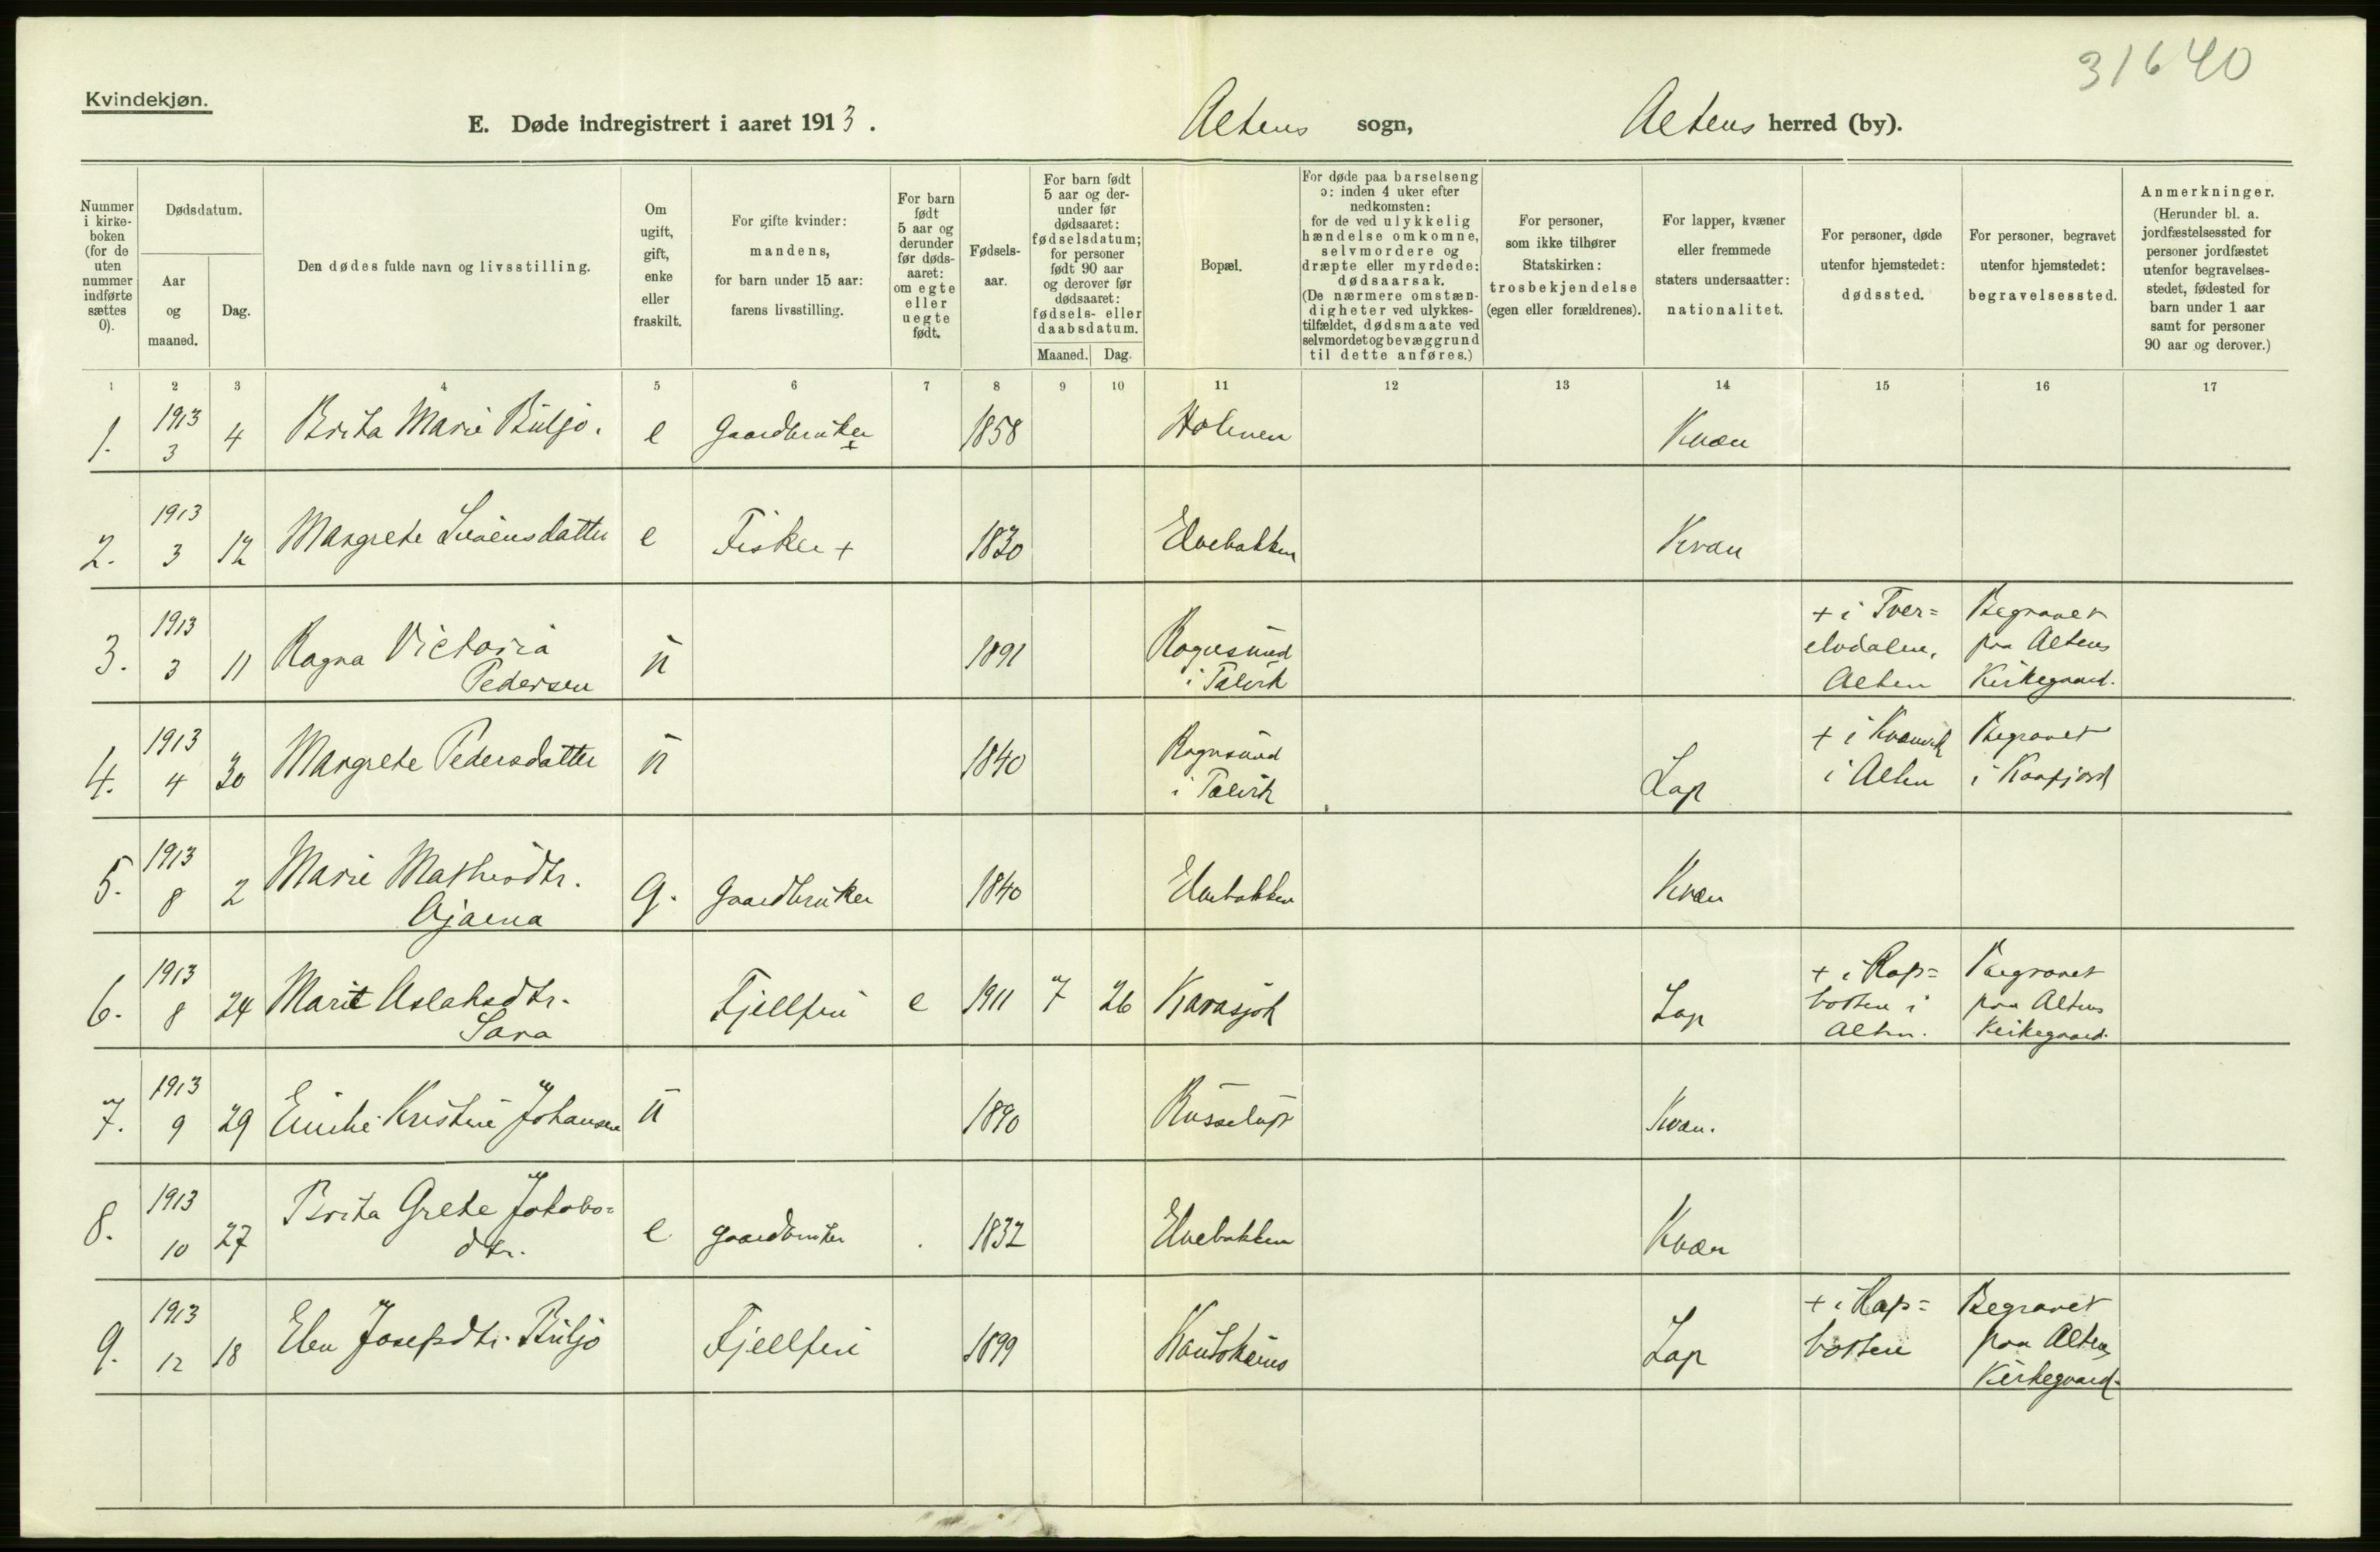 31640
Kvindekjøn.
E. Døde indregistrert i aaret 1913. Altens sogn, Altens herred (by).
Nummer i kirke-boken (for de uten nummer indførte sættes 0).
Dødsdatum.
Aar og maaned.
Dag.
Den dødes fulde navn og livsstilling.
Om ugift, gift, enke eller fraskilt.
For gifte kvinder: mandens, for barn under 15 aar: farens livsstilling.
For barn født 5 aar og derunder før døds-aaret: om egte eller uegte født.
Fødsels-aar.
For barn født 5 aar og der-under før dødsaaret: fødselsdatum; for personer født 90 aar og derover før dødsaaret: fødsels- eller daabsdatum.
Maaned. Dag.
Bopæl.
For døde paa barselseng ɔ: inden 4 uker efter nedkomsten: for de ved ulykkelig hændelse omkomne, selvmordere og dræpte eller myrdede: dødsaarsak. (De nærmere omstæn-digheter ved ulykkes-tilfældet, dødsmaate ved selvmordet og bevæggrund til dette anføres.)
For personer, som ikke tilhører Statskirken: trosbekjendelse (egen eller forældrenes).
For lapper, kvæner eller fremmede staters undersaatter: nationalitet.
For personer, døde utenfor hjemstedet: dødssted.
For personer, begravet utenfor hjemstedet: begravelsessted.
Anmerkninger. (Herunder bl. a. jordfæstelsessted for personer jordfæstet utenfor begravelses-stedet, fødested for barn under 1 aar samt for personer 90 aar og derover.)
1 2 3 4 5 6 7 8 9 10 11 12 13 14 15 16 17
1. 1913 3 4 Brita Marie Buljo. e Gaardbruker + 1858 Holmen Kvæn
2. 1913 3 12 Margrete Simensdatter e Fisker + 1830 Elvebakken Kvæn
3. 1913 3 11 Ragna Victoria Pedersen u 1891 Rognsund i Talvik + i Tver=elvdalen, Alten Begravet paa Altens Kirkegaard.
4. 1913 4 30 Margrete Pedersdatter u 1840 Rognsund i Talvik Lap + i Kvænvik i Alten Begravet i Kaafjord
5. 1913 8 2 Marie Mathisdtr. Ojaema g. Gaardbruker 1840 Elvebakken Kvæn
6. 1913 8 24 Marit Aslaksdtr. Sara Fjellfin e 1911 7 26 Karasjok Lap + i Rap=botten i Alten. Begravet paa Altens Kirkegaard.
7. 1913 9 29 Emilie Kristine Johansen u 1890 Russeluft Kvæn.
8. 1913 10 27 Brita Grete Jakobs=dtr. e gaardbruker 1832 Elvebakken Kvæn
9. 1913 12 18 Elen Josefsdtr. Buljo Fjellfin 1899 Kautokeino Lap + i Rap=botten Begravet paa Altens Kirkegaard.